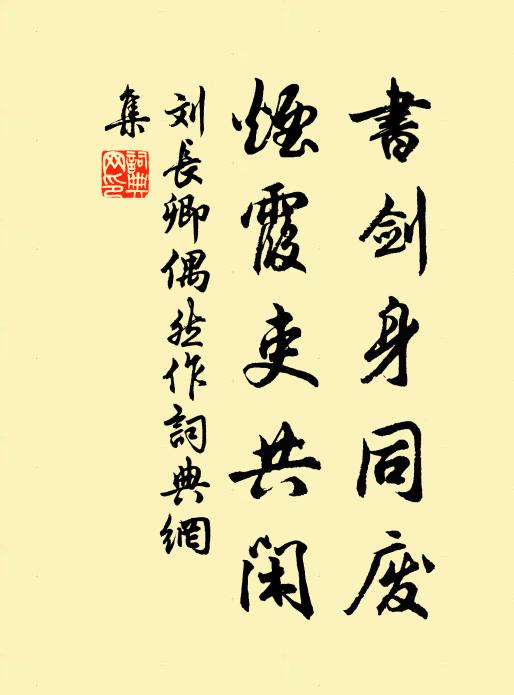 書剑身同废
煙霞吏共闲
刘長卿偶然作詞典網
集
詞典网印